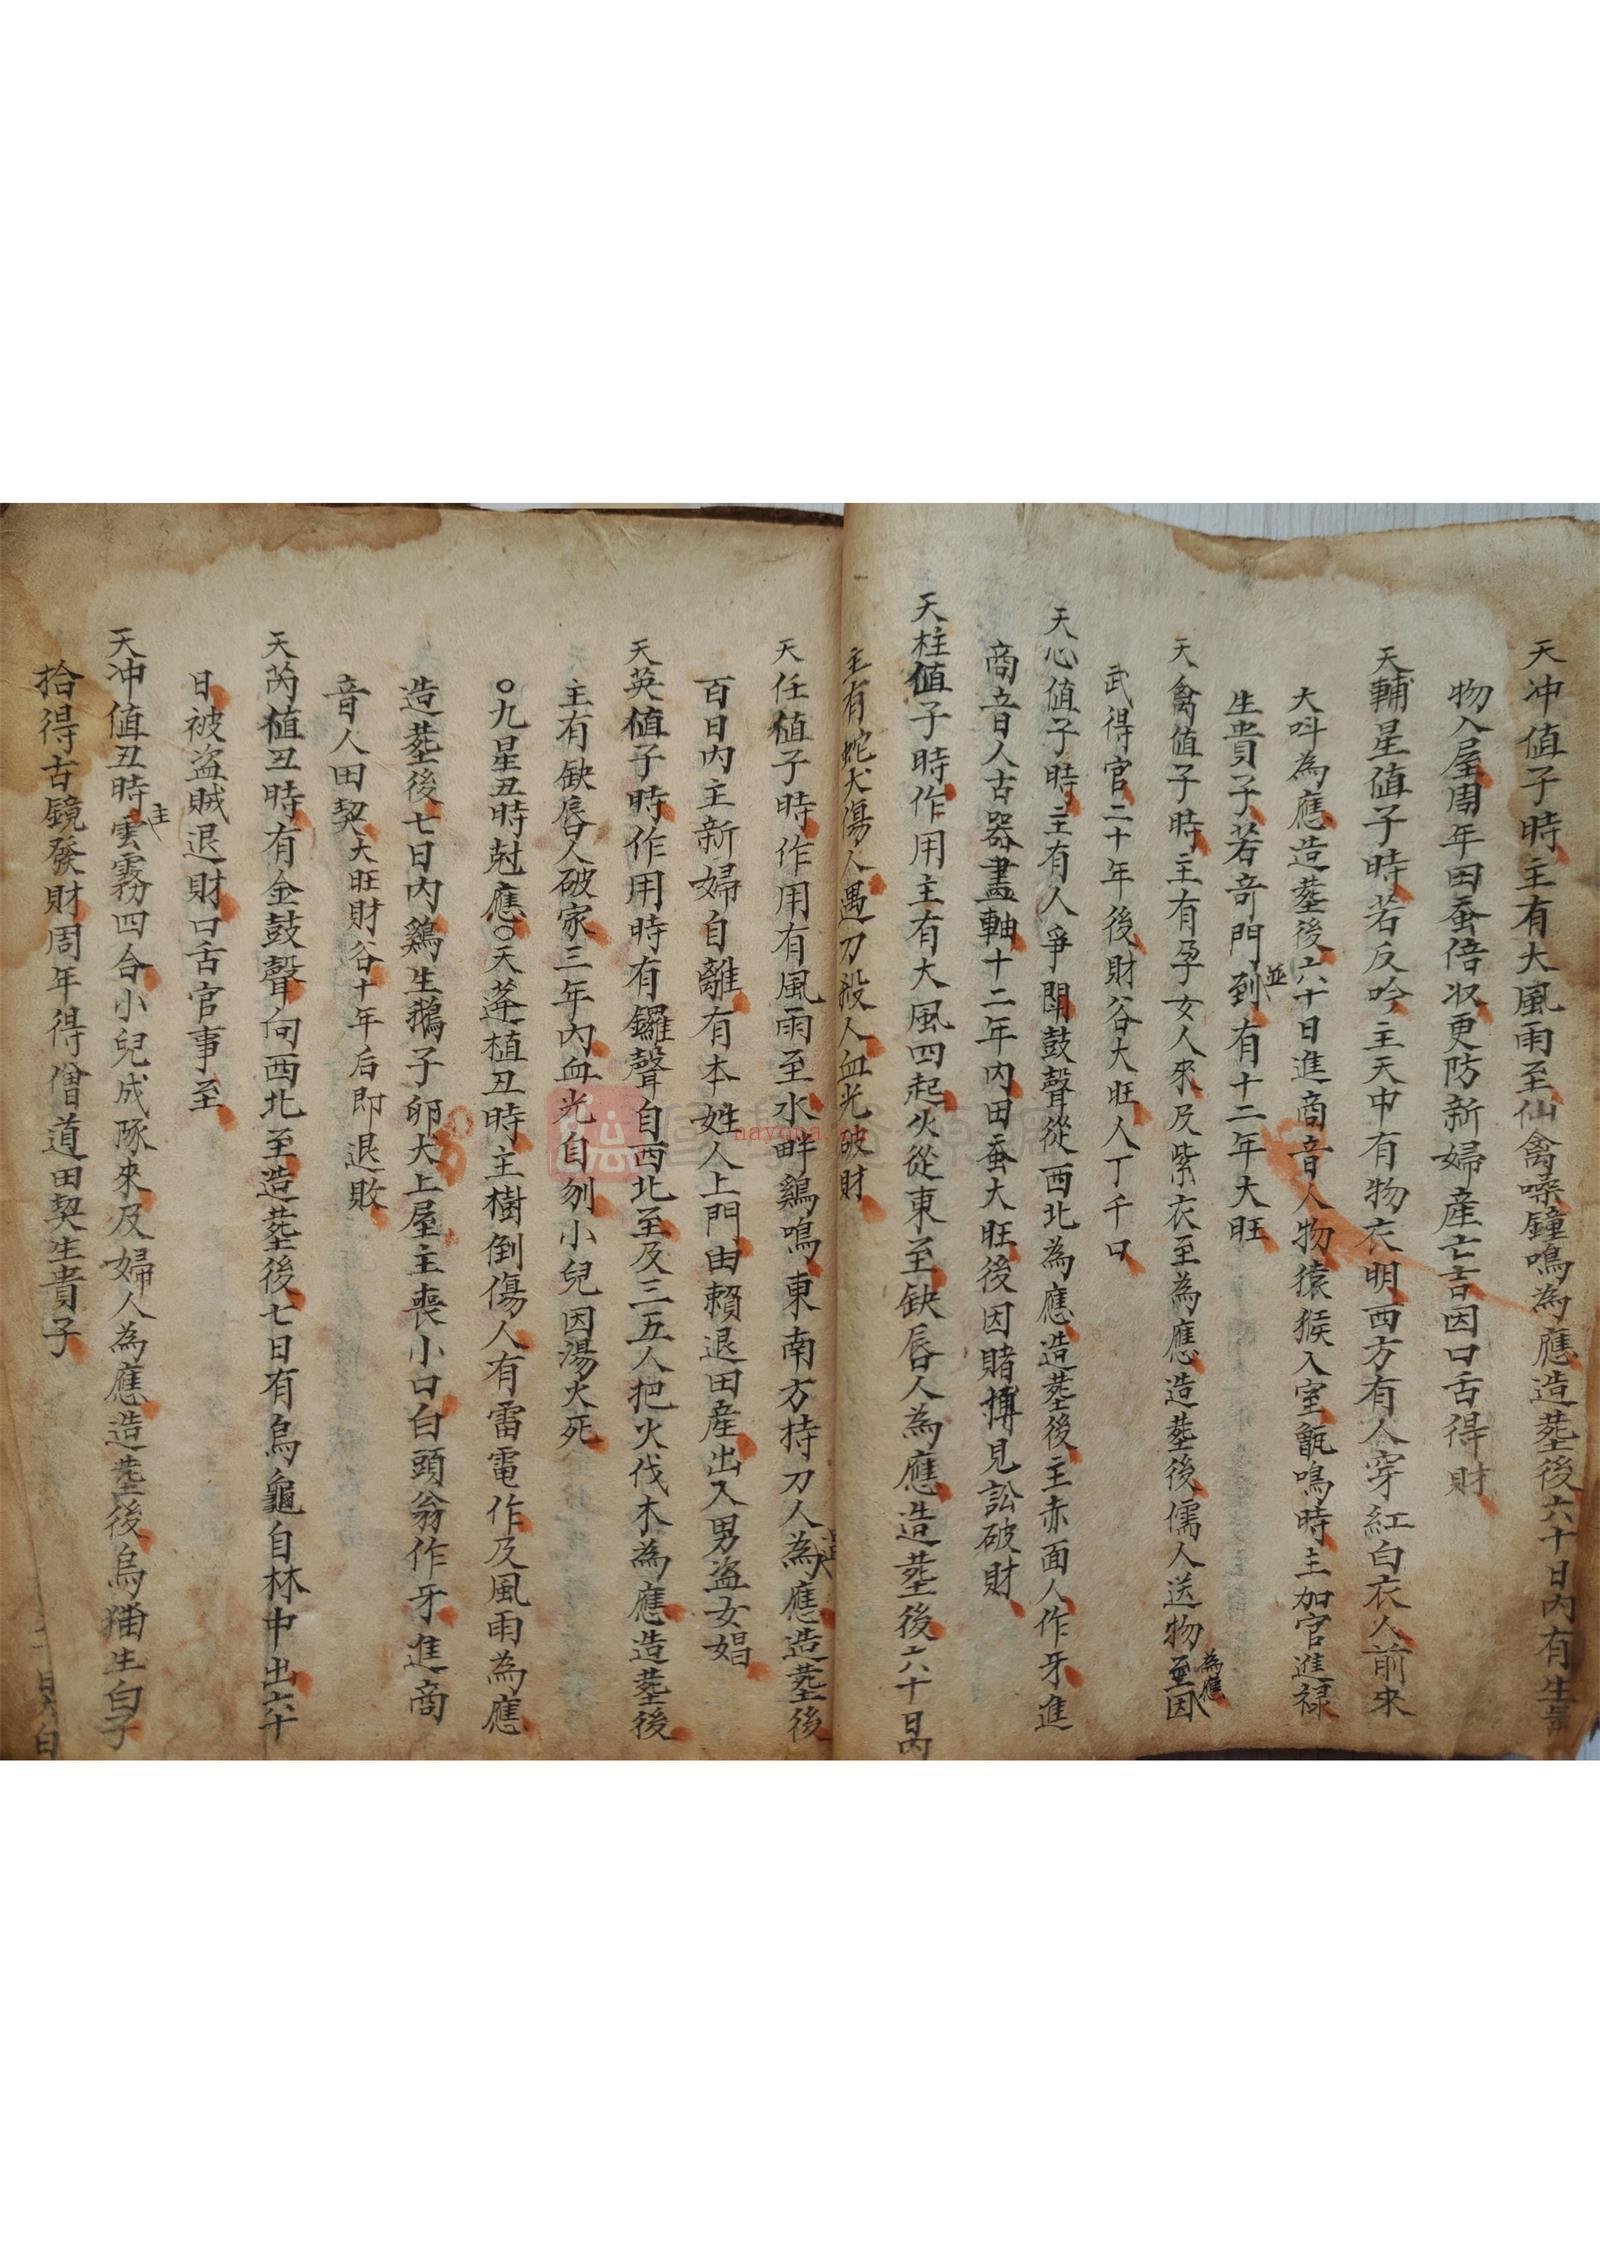 天冲值子時主有大風雨至仙禽噪鐘鳴為應造塟後六十日內有生氣
物入屋周年田蚕倍收更防新婦產亡言因口舌得財
天輔星值子時若反吟主天中有物衣明西方有人穿紅白衣人前來
大呌為應造塟後六十日進商音人物猿猴入室甑鳴時主加官進祿
生貴子若奇門並到有十二年大旺
天禽值子時主有孕女人來及紫衣至為應造塟後儒人送物至為應因
武得官二十年後財谷大旺人丁千口
天心值子時主有人爭鬧鼓聲從西北為應造塟後主赤面人作牙進
商音人古器畫軸十二年內田蚕大旺後因賭博見訟破財
天柱值子時作用主有大風四起火從東至缺唇人為應造塟後六十日內
主有蛇犬傷人遇刀殺人血光破財
天任值子時作用有風雨至水畔鷄鳴東南方持刀人為應造塟後
百日內主新婦自離有本姓人上門由賴退田產出入男盜女娼
天英值子時作用時有鑼聲自西北至及三五人把火伐木為應造塟後
主有缺唇人破家三年內血光自刎小兒因湯火死
○九星丑時尅應○天蓬植丑時主樹倒傷人有雷電作及風雨為應
造塟後七日內鷄生鵝子卵犬上屋主喪小口白頭翁作牙進商
音人田契大旺財谷十年后即退敗
天芮值丑時有金鼓聲向西北至造塟後七日有烏龜自林中出六十
日被盜賊退財口舌官事至
天冲值丑時主雲霧四合小兒成隊來及婦人為應造塟後烏猫生白子
拾得古鏡發財周年得僧道田契生貴子
nayona.cn